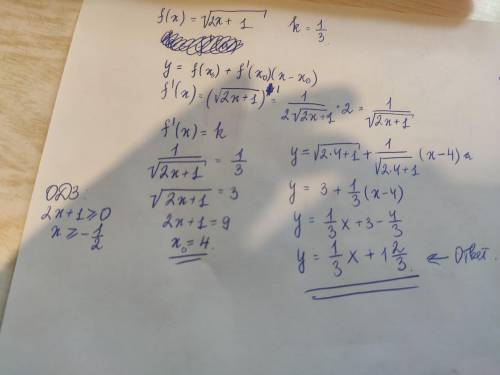 f(x) = √(2x+1)   k = 1/3.
y = f(x₀) + f'(x₀)(x - x₀)
f'(x) = (√(2x+1))' = 1/(2√(2x+1)) · 2 = 1/√(2x+1)
f'(x) = k
1/√(2x+1) = 1/3
√(2x+1) = 3
2x+1 = 9
x₀ = 4.
ОДЗ:
2x+1 ≥ 0
x ≥ -1/2
y = √(2·4+1) + 1/√(2·4+1) (x-4)
y = 3 + 1/3 (x-4)
y = 1/3 x + 3 - 4/3
y = 1/3 x + 1 2/3. ← Ответ.